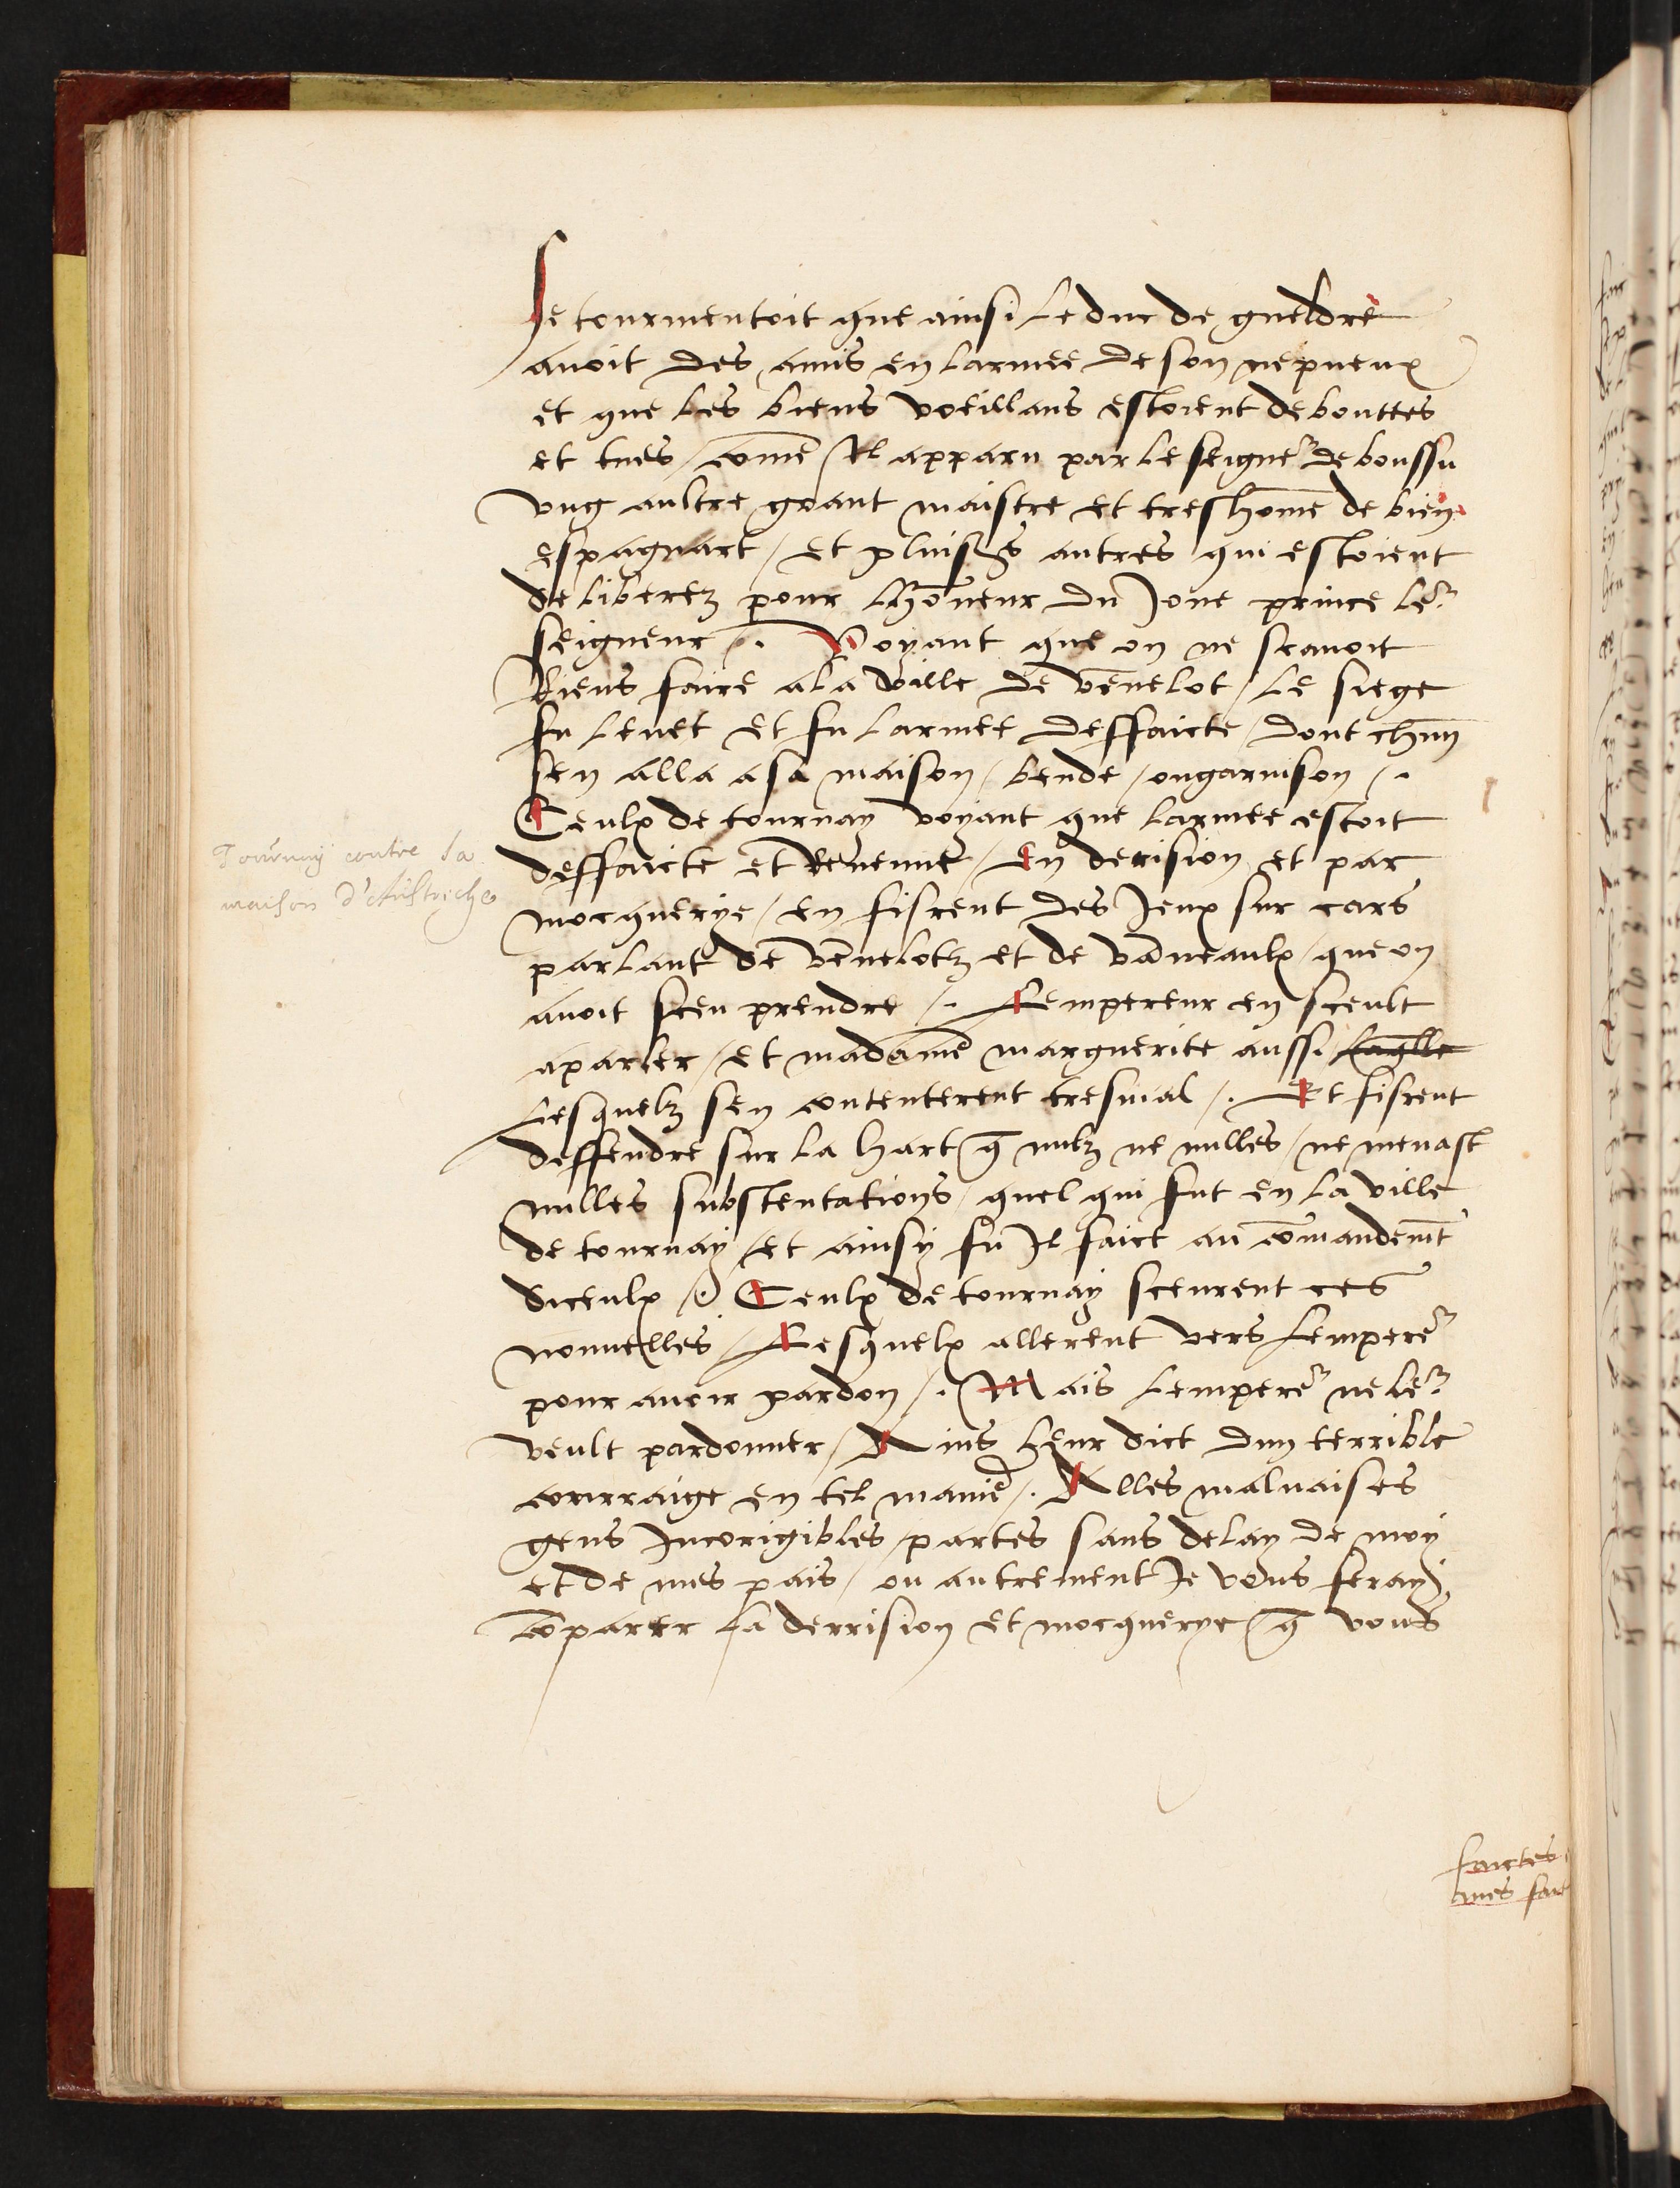 Se tourmentoit que ainsi le duc de gueldre
avoit des amis en larmee de son nepueux
et que les biens voeillans estoient debouttes
et tues / come Il apparu par le seigner de boussu
vng aultre grant maistre et treshome de bien
espagnart / et pluisrs autres qui estoient
deliberez pour lhoneur du Jone prince ler
seigneur /. Voyant que on ne scauoit
Riens faire a la ville de venelot / le siege
fu leuet et fu larmee deffaicte / dont chun
sen alla a sa maison / bende / ou garnison /.
Ceulx de tournay voyant que larmee estoit
deffaicte et Reuenue / En derision et par
mocquerye / en fisrent des Jeux sur cars
parlant de venelotz et de vaneaulx / que on
auoit sceu prendre /. Lempereur en sceult
a parler / et madame marguerite aussi laqlle
Lesquelz sen contenterent tresmal /. Et fisrent
deffendre sur la hart q nulz ne nulles / ne menast
nulles substentations / quel qui fut en la ville
de tournay / et ainsy fu Il faict au comandemt
diceulx /. Ceulx de tournay sceurent ces
nouuelles / Lesquelx allerent vers lemperer
pour auoir pardon /. Mais lemperer ne ler
veult pardonner / Ains leur dict dun terrible
courraige en tel manie /. Alles maluaises
gens Incorigibles / partes sans delay de moy
et de mes pais / ou autrement Je vous feray
coparer la derrision et mocquerye q vous
Tournay contre la
maison d'Austriche
faictes
mes